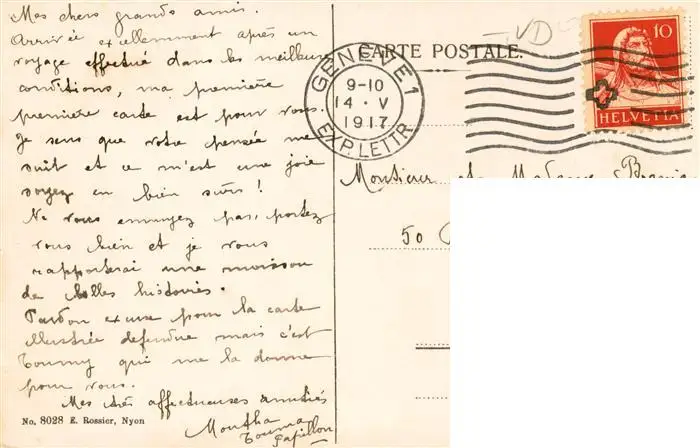 Mes chers grands amis.
Arrivée excellemment après un
voyage effectué dans les meilleures
conditions, ma première
première carte est pour vous.
Je sens que votre pensée me
suit et ce m'est une joie
soyez en bien sûrs !
Ne vous ennuyez pas, portez
vous bien et je vous
rapporterai une moisson
de belles histoires.
Pardon excuse pour la carte
illustrée défendue mais c'est
Toumy qui me la donne
pour vous.
Mes très affectueuses amitiés
Papillon
No. 8028 E. Rossier, Nyon
CARTE POSTALE.
VD
GENÈVE 1
9-10
14 · V
1917
EXP. LETTR
10
HELVETIA
Monsieur et Madame
50